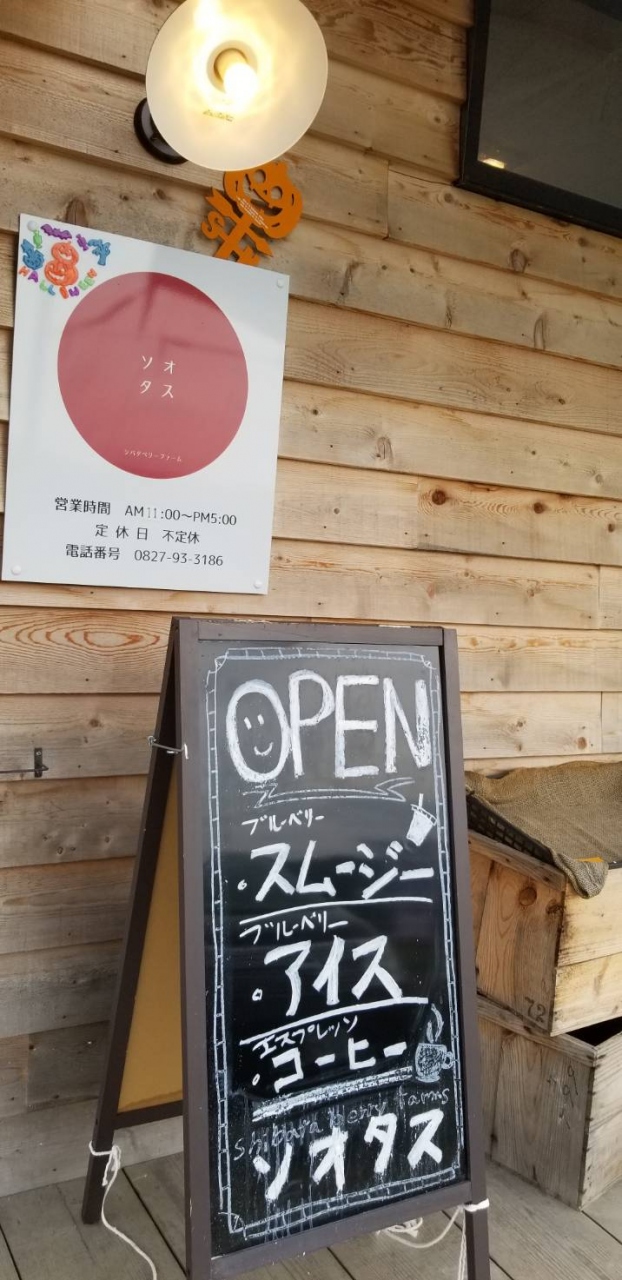 HALLOWEEN
ソオ
タス
シバタベリーファーム
営業時間 AM11:00～PM5:00
定休日 不定休
電話番号 0827-93-3186
OPEN
ブルーベリー
スムージー
ブルーベリー
アイス
エスプレッソ
コーヒー
Shibata Berry Farms
ソオタス
72